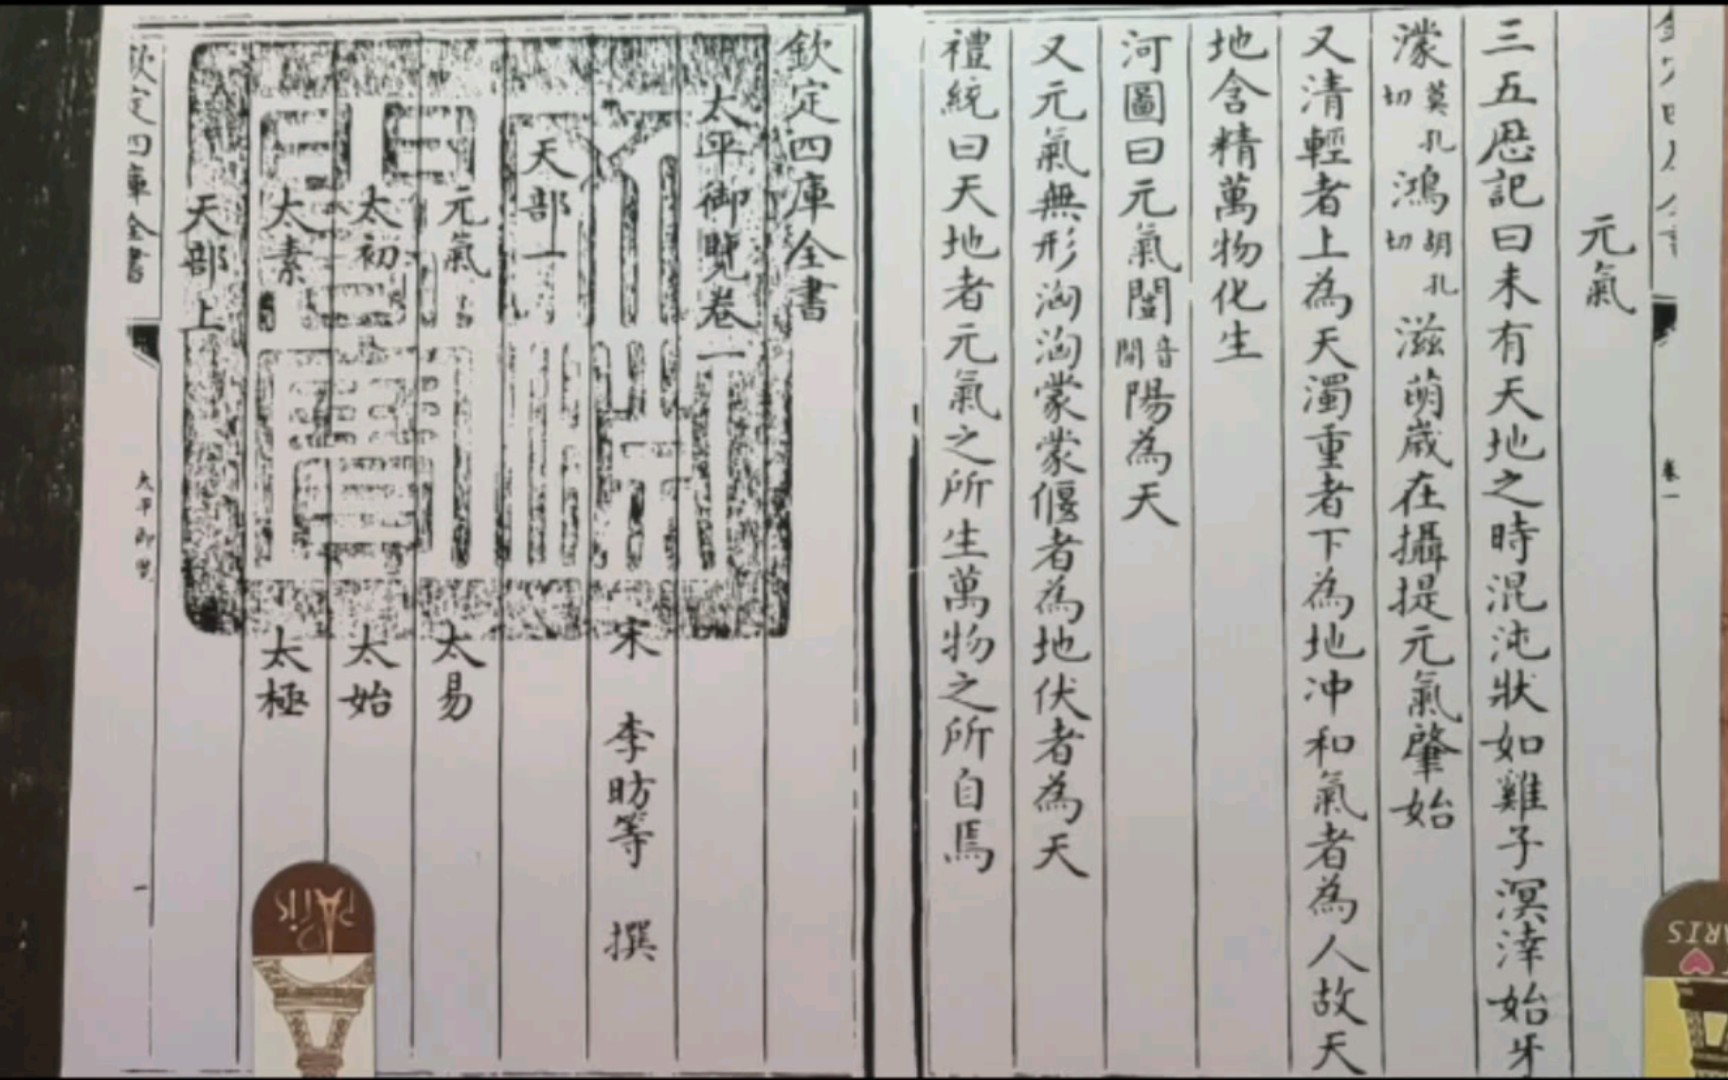 欽定四庫全書
太平御覽卷一
宋 李昉等 撰
天部一
元氣 太易
太初 太始
太素 太極
天部上
欽定四庫全書
太平御覽
一
文淵閣寶
PARIS
卷一
元氣
三五厯記曰未有天地之時混沌狀如雞子溟涬始牙
濛莫孔切鴻胡孔切滋萌歲在攝提元氣肇始
又清輕者上為天濁重者下為地冲和氣者為人故天
地含精萬物化生
河圖曰元氣闓音開陽為天
又元氣無形洶洶蒙蒙偃者為地伏者為天
禮統曰天地者元氣之所生萬物之所自焉
ARIS